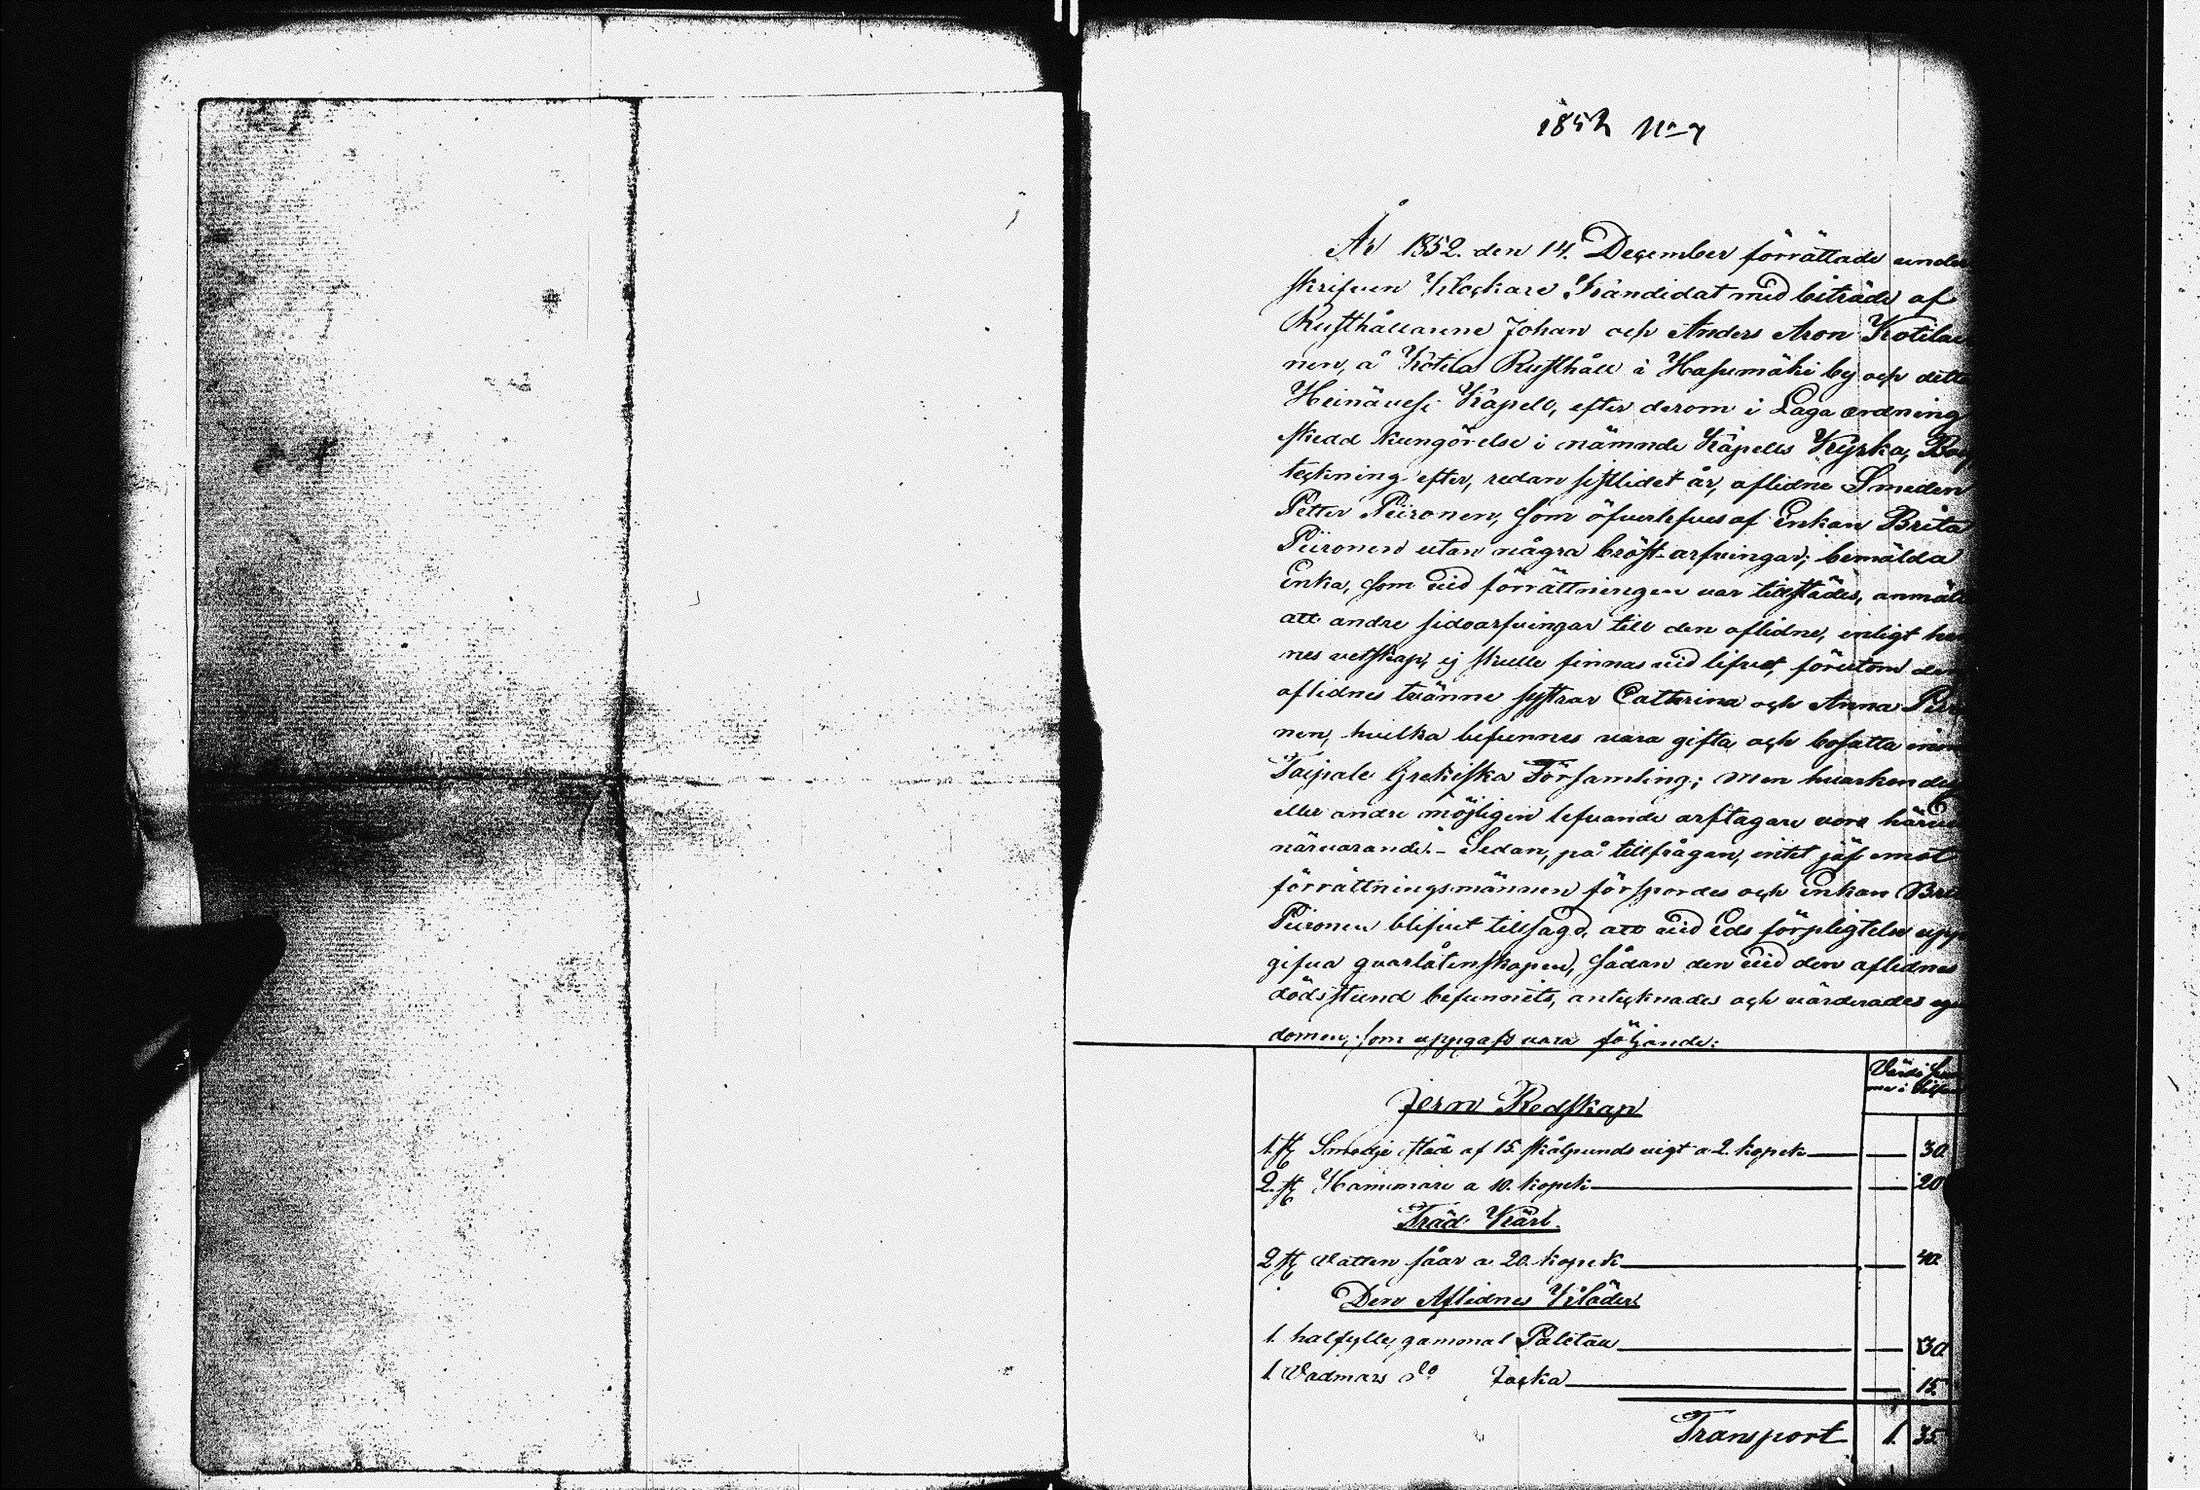 1852 No 7
År 1852. den 14. December förrättade under
skrifven Klockare Kandidat med biträde af
Rusthållarene Johan och Anders Aron Kotilai
nen, å Kotila Rusthåll i Hasumäki by och detta
Heinävesi Kapell, efter derom i Laga ordning
skedd kungörelse i nämnde Kapells Kyrka, Bou
teckning efter, redan sistlidet år, aflidne Smeden
Petter Piironen, som öfverlefves af Enkan Brita
Piironen utan några bröst-arfvingar; bemälda
Enka, som vid förrättningen var tillstädes, anmälte
att andre sidoarfvingar till den aflidne, enligt hen
nes vetskap, ej skulle finnas vid lifvet, förutom den
aflidnes tvänne systrar Catharina och Anna Piiro
nen, hvilka befunnes vara gifta och bosatta inom
Taipale Grekiska Församling; men hvarken de
eller andre möjligen lefvande arftagare voro härvid
närvarande. – Sedan, på tillfrågan, intet jäf emot
förrättningsmännen förspordes och Enkan Brita
Piironen blifvit tillsagd, att vid Eds förpligtelse upp
gifva qvarlåtenskapen, sådan den vid den aflidnes
dödsstund befunnits, antecknades och värderades egen
domen, som uppgafs vara följande:
Jern Redskap
1. st Smedje städ af 15. skålpunds vigt a 2. kopek — — 30
2. st Hammare a 10. kopek — — 20
Träd Kärl.
2 st Vatten såar a 20. kopek — — 40
Den Aflidnes Kläder
1. halfylle, gammal Paletau — — 30
1. Vadmars do Jacka — — 15
Transport 1. 35